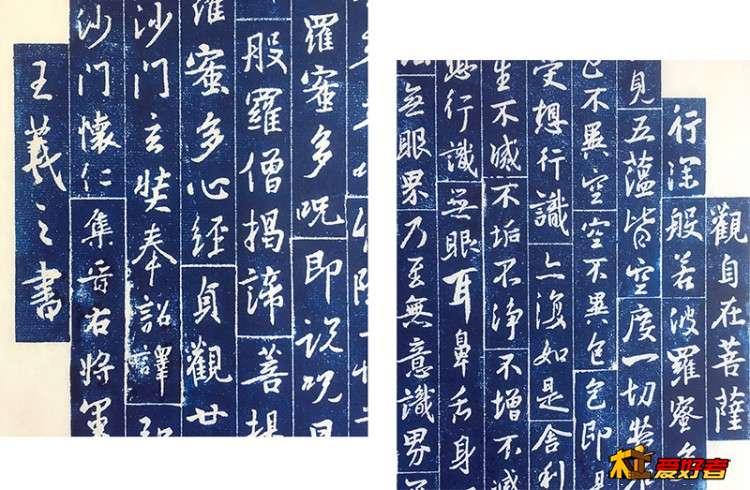 觀自在菩薩
行深般若波羅蜜多
見五蘊皆空度一切苦
色不異空空不異色色即是
受想行識亦復如是舍利
生不滅不垢不淨不增不減
想行識無眼耳鼻舌身
無眼界乃至無意識界
羅蜜多呪即說呪曰
般羅僧揭諦菩提
羅蜜多心經貞觀廿
沙門玄奘奉詔譯
沙門懷仁集晉右將軍
王羲之書
爱好者